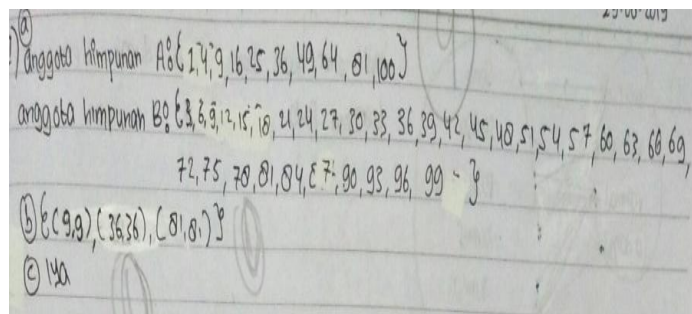 23-08-2019
ⓐ
1) anggota himpunan A: {1,4,9,16,25,36,49,64,81,100}
anggota himpunan B: {3,6,9,12,15,18,21,24,27,30,33,36,39,42,45,48,51,54,57,60,63,66,69,
72,75,78,81,84,87,90,93,96,99}
ⓑ {(9,9),(36,36),(81,81)}
ⓒ iya